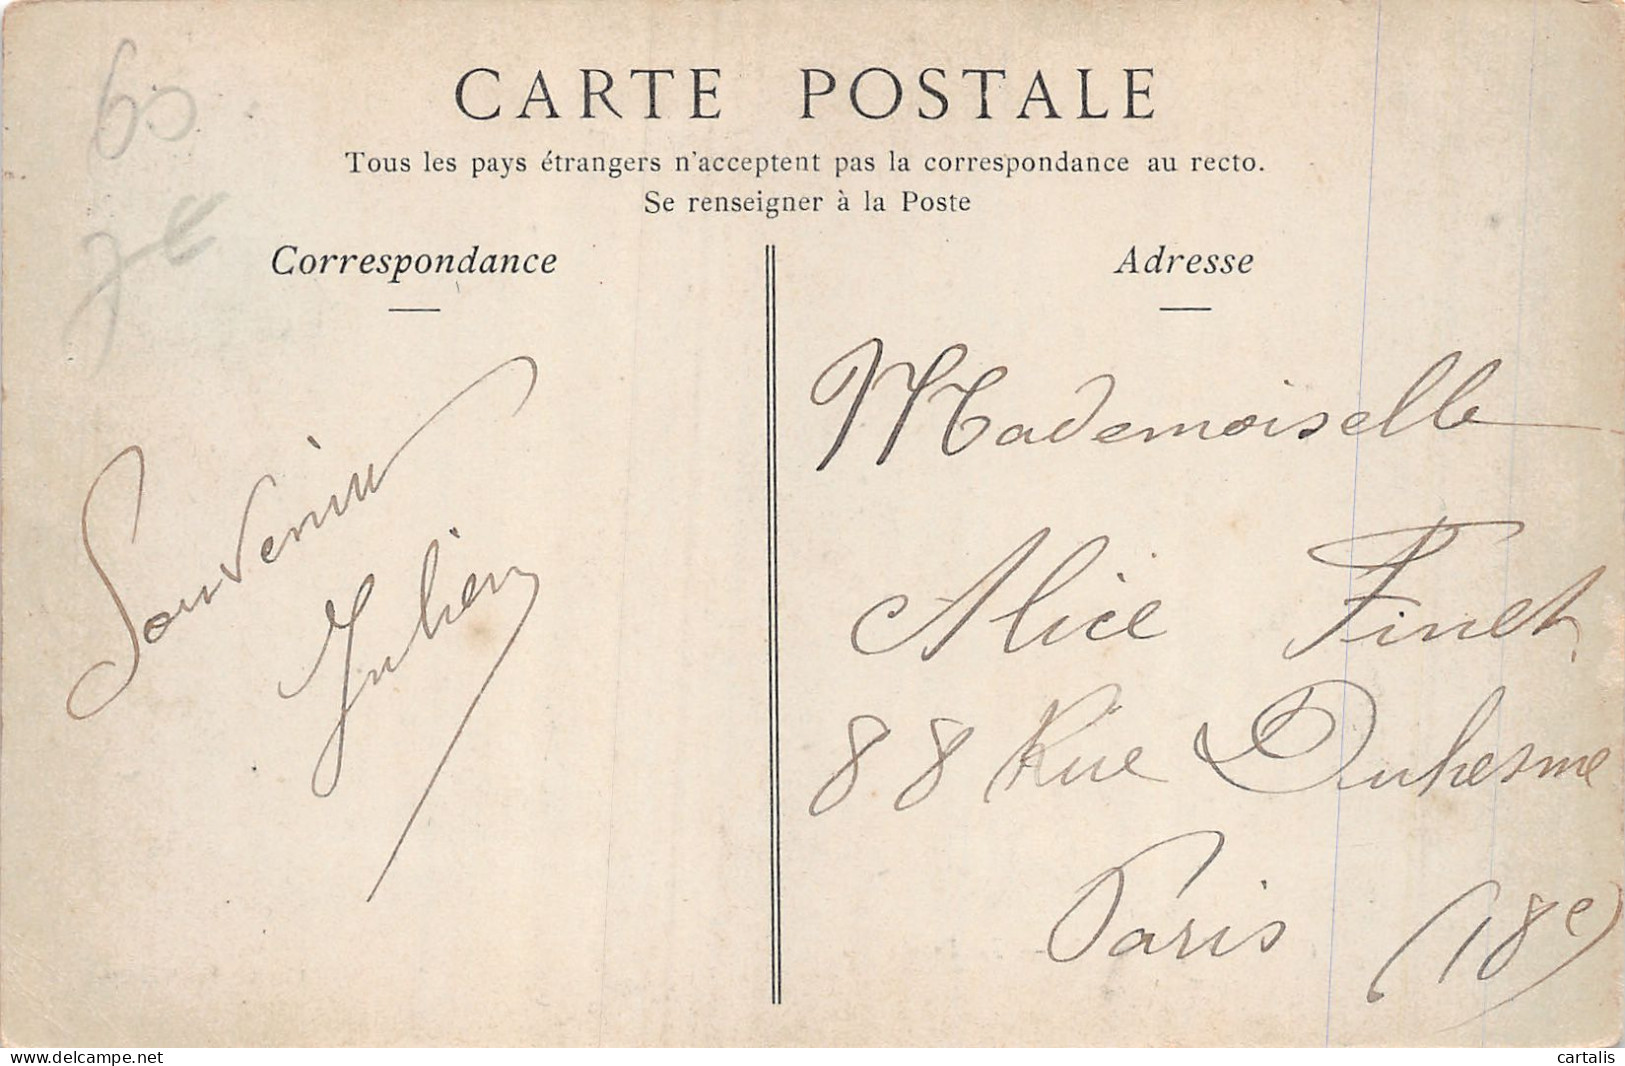 60
7€
CARTE POSTALE
Tous les pays étrangers n'acceptent pas la correspondance au recto.
Se renseigner à la Poste
Correspondance
Souvenir
Julien
Adresse
Mademoiselle
Alice Finet
88 Rue Duhesme
Paris (18e)
www.delcampe.net
cartalis